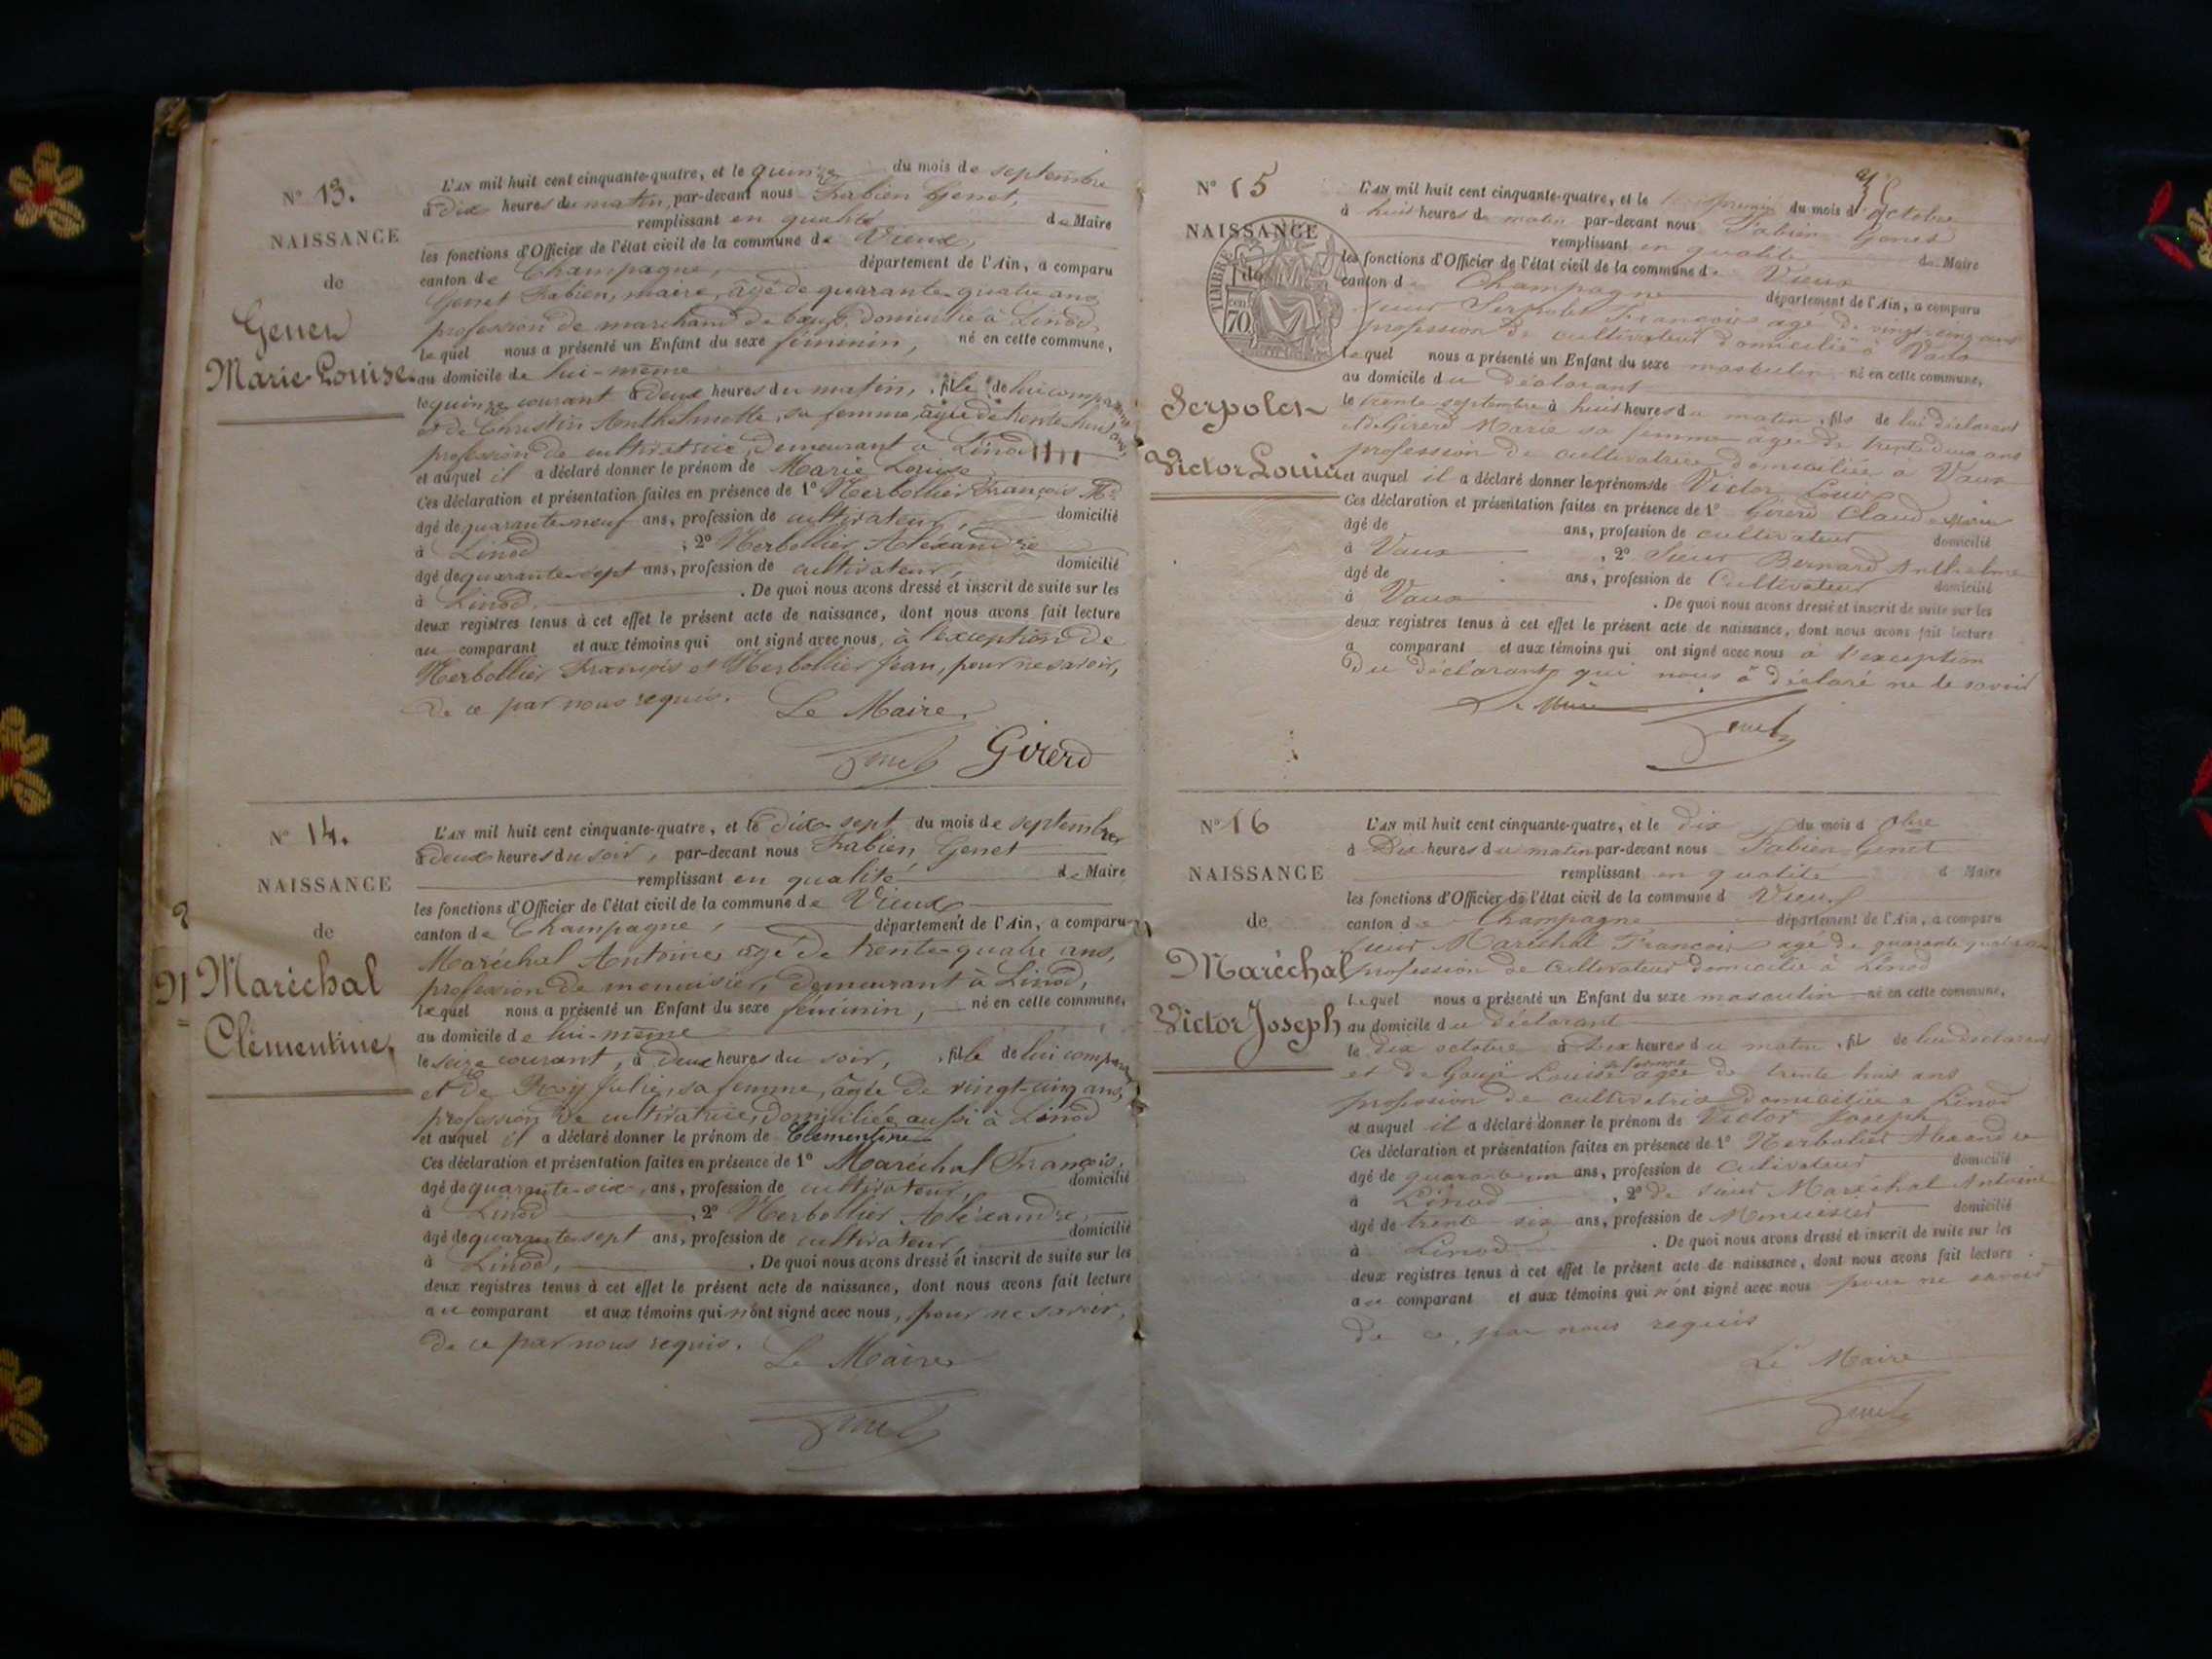 N° 13.
NAISSANCE
de
Genet
Marie Louise
L'AN mil huit cent cinquante-quatre, et le quinze du mois de septembre
à dix heures du matin, par-devant nous Fabien Genet,
remplissant en qualité de Maire
les fonctions d'Officier de l'état civil de la commune de Vieux,
canton de Champagne, département de l'Ain, a comparu
Genet Fabien, maire, âgé de quarante-quatre ans
profession de marchand de boeufs, domicilié à Linod,
lequel nous a présenté un Enfant du sexe féminin, né en cette commune,
au domicile de lui-même
le quinze courant à deux heures du matin, fille de lui comparant
et de Christin Anthelmette, sa femme, âgée de trente huit ans,
profession de cultivatrice, demeurant à Linod
et auquel il a déclaré donner le prénom de Marie Louise
Ces déclaration et présentation faites en présence de 1° Herbollier François
âgé de quarante neuf ans, profession de cultivateur, domicilié
à Linod ; 2° Herbollier Aléxandre
âgé de quarante-sept ans, profession de cultivateur, domicilié
à Linod, . De quoi nous avons dressé et inscrit de suite sur les
deux registres tenus à cet effet le présent acte de naissance, dont nous avons fait lecture
au comparant et aux témoins qui ont signé avec nous, à l'exception de
Herbollier François et Herbollier Jean, pour ne savoir,
de ce par nous requis. Le Maire,
Genet Girerd
N° 14.
NAISSANCE
de
Maréchal
Clémentine,
L'AN mil huit cent cinquante-quatre, et le dix sept du mois de septembre
à deux heures du soir, par-devant nous Fabien Genet
remplissant en qualité de Maire
les fonctions d'Officier de l'état civil de la commune de Vieux
canton de Champagne, département de l'Ain, a comparu
Maréchal Antoine, âgé de trente-quatre ans,
profession de menuisier, demeurant à Linod,
lequel nous a présenté un Enfant du sexe féminin, né en cette commune,
au domicile de lui-même
le seize courant, à deux heures du soir, fille de lui comparant
et de Roy Julie, sa femme, âgée de vingt-cinq ans,
profession de cultivatrice, domiciliée aussi à Linod
et auquel il a déclaré donner le prénom de Clémentine
Ces déclaration et présentation faites en présence de 1° Maréchal François,
âgé de quarante-six, ans, profession de cultivateur, domicilié
à Linod , 2° Herbollier Aléxandre,
âgé de quarante-sept ans, profession de cultivateur, domicilié
à Linod, . De quoi nous avons dressé et inscrit de suite sur les
deux registres tenus à cet effet le présent acte de naissance, dont nous avons fait lecture
au comparant et aux témoins qui n'ont signé avec nous, pour ne savoir,
de ce par nous requis. Le Maire
Genet
N° 15
NAISSANCE
TIMBRE
cen
70
Serpolet
Victor Louis
L'AN mil huit cent cinquante-quatre, et le premier du mois d'octobre
à huit heures du matin par-devant nous Fabien Genet
remplissant en qualité de Maire
les fonctions d'Officier de l'état civil de la commune de Vieux
canton de Champagne département de l'Ain, a comparu
sieur Serpolet François agé de vingt-cinq ans
profession de cultivateur domicilié à Vaux
lequel nous a présenté un Enfant du sexe masculin né en cette commune,
au domicile du déclarant
le trente septembre à huit heures du matin, fils de lui déclarant
et de Girerd Marie sa femme agée de trente deux ans
profession de cultivatrice domiciliée à Vaux
et auquel il a déclaré donner le prénoms de Victor Louis
Ces déclaration et présentation faites en présence de 1° Girerd Claude Marie
âgé de ans, profession de cultivateur domicilié
à Vaux , 2° Sieur Bernard Anthelme
âgé de ans, profession de Cultivateur domicilié
à Vaux . De quoi nous avons dressé et inscrit de suite sur les
deux registres tenus à cet effet le présent acte de naissance, dont nous avons fait lecture
a comparant et aux témoins qui ont signé avec nous à l'exception
du déclarant qui nous à déclaré ne le savoir
Le Maire
Genet
N° 16
NAISSANCE
de
Maréchal
Victor Joseph
L'AN mil huit cent cinquante-quatre, et le dix du mois d 8bre
à Dix heures du matin par-devant nous Fabien Genet
remplissant en qualité d Maire
les fonctions d'Officier de l'état civil de la commune d Vieux
canton de Champagne département de l'Ain, a comparu
sieur Maréchal François agé de quarante quatre ans
profession de Cultivateur domicilié à Linod
lequel nous a présenté un Enfant du sexe masculin né en cette commune,
au domicile du déclarant
le dix octobre à six heures du matin, fils de lui déclarant
et de Goujé Louise sa femme agée de trente huit ans
profession de cultivatrice domiciliée a Linod
et auquel il a déclaré donner le prénom de Victor Joseph
Ces déclaration et présentation faites en présence de 1° Herbolier Alexandre
âgé de quarante ans, profession de Cultivateur domicilié
à Linod , 2° de sieur Maréchal Antoine
âgé de trente-six ans, profession de Menuisier domicilié
à Linod . De quoi nous avons dressé et inscrit de suite sur les
deux registres tenus à cet effet le présent acte de naissance, dont nous avons fait lecture
au comparant et aux témoins qui n'ont signé avec nous pour ne savoir
de ce, par nous requis
Le Maire
Genet